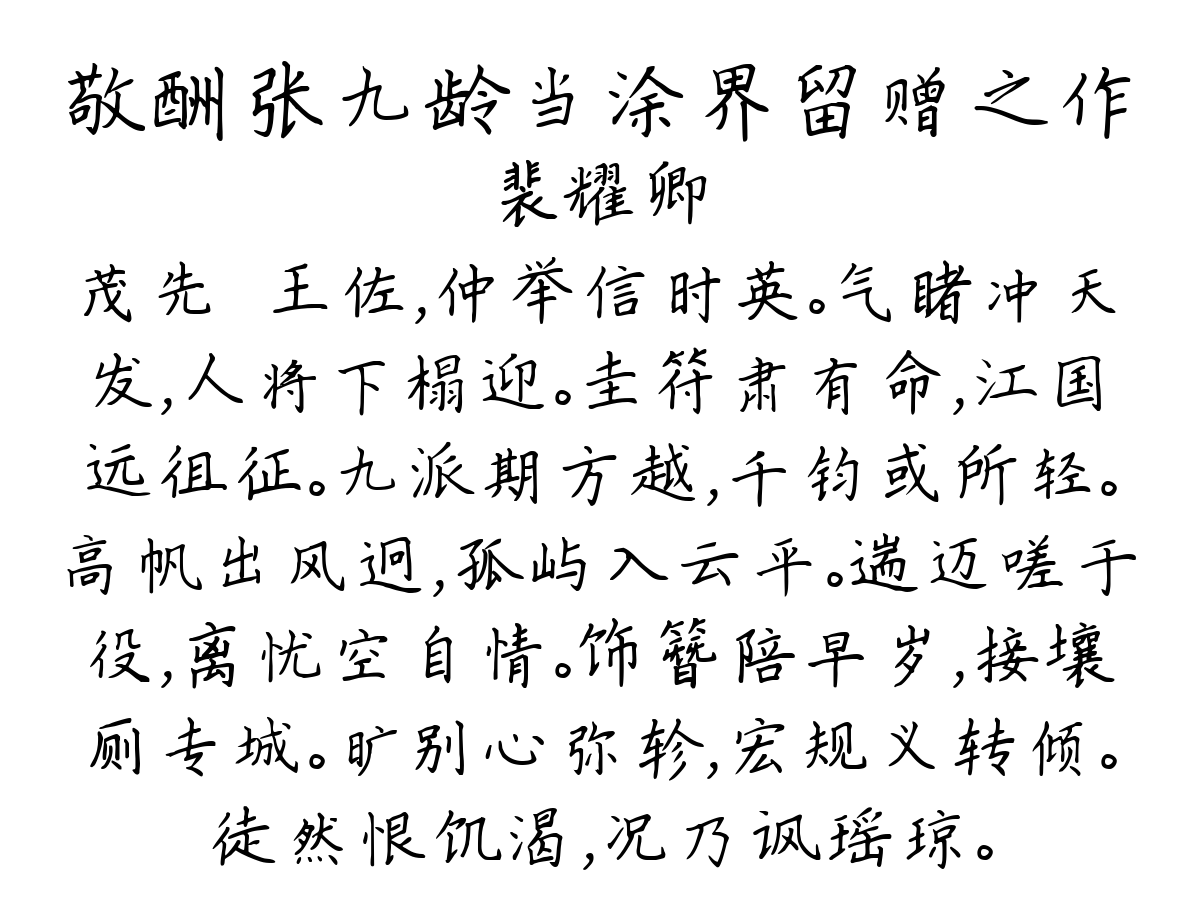 敬酬张九龄当涂界留赠之作
裴耀卿
茂先 王佐,仲举信时英。气睹冲天
发,人将下榻迎。圭符肃有命,江国
远徂征。九派期方越,千钧或所轻。
高帆出风迥,孤屿入云平。遄迈嗟于
役,离忧空自情。饰簪陪早岁,接壤
厕专城。旷别心弥轸,宏规义转倾。
徒然恨饥渴,况乃讽瑶琼。